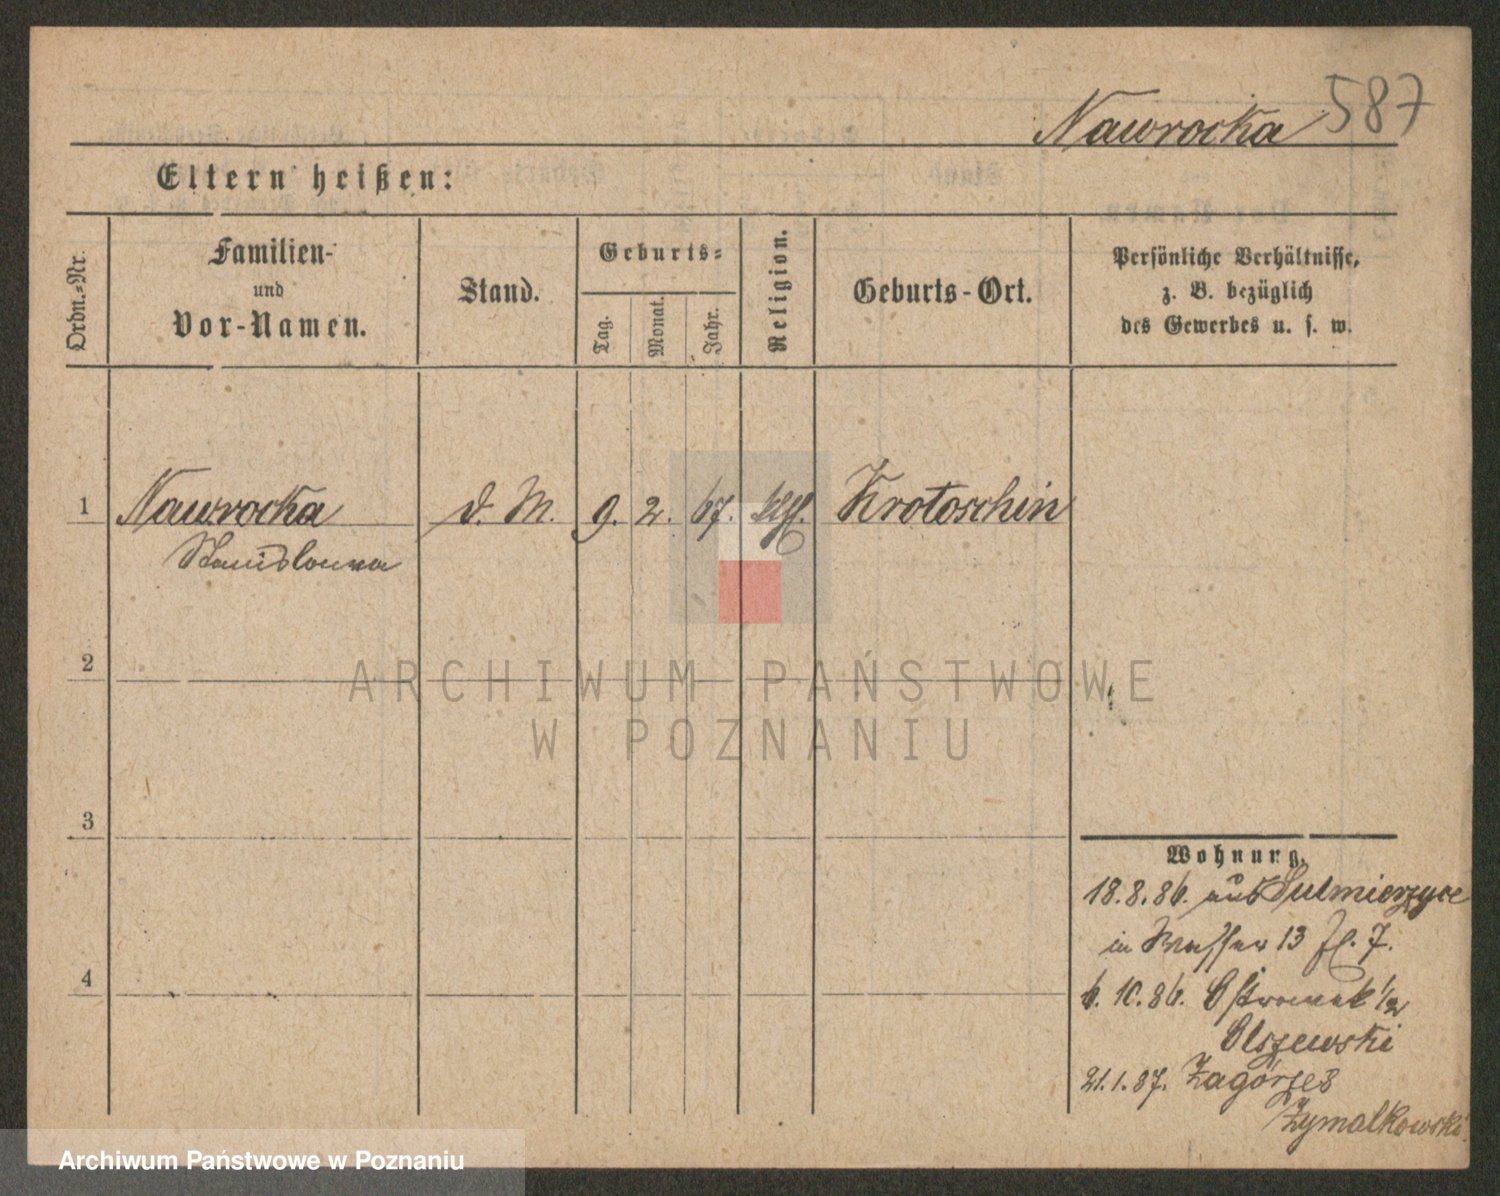 Nawrocka 587
Eltern heißen:
Ordn.-Nr.
Familien-
und
Vor-Namen.
Stand.
Geburts-
Tag.
Monat.
Jahr.
Religion.
Geburts-Ort.
Persönliche Verhältnisse,
z. B. bezüglich
des Gewerbes u. s. w.
1 Nawrocka d. M. 9. 2. 67. Krotoschin
Stanislawa
2
3
4
Wohnung.
18.8.86. aus Sulmierzyce
in Wasser 13
6.10.86. Ostrowek 1/2
Olszewski
21.1.87. Zagórze 8
Zymalkowski
ARCHIWUM PAŃSTWOWE
W POZNANIU
Archiwum Państwowe w Poznaniu